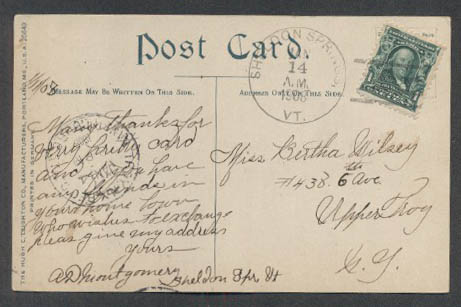 THE HUGH C. LEIGHTON CO., MANUFACTURERS, PORTLAND, ME., U.S.A.
PRINTED IN GERMANY
Post Card.
MESSAGE MAY BE WRITTEN ON THIS SIDE.
ADDRESS ONLY ON THIS SIDE.
SHELDON SPRINGS
14
A.M.
1908
VT.
Many thanks for
very pretty card
and have
any friends in
your home town
who wishes to exchange
pleas give my address
yours
A D Montgomery
Sheldon Spr Vt
Miss Bertha Wilsey
#438. 6th Ave
Upper Troy
N. Y.